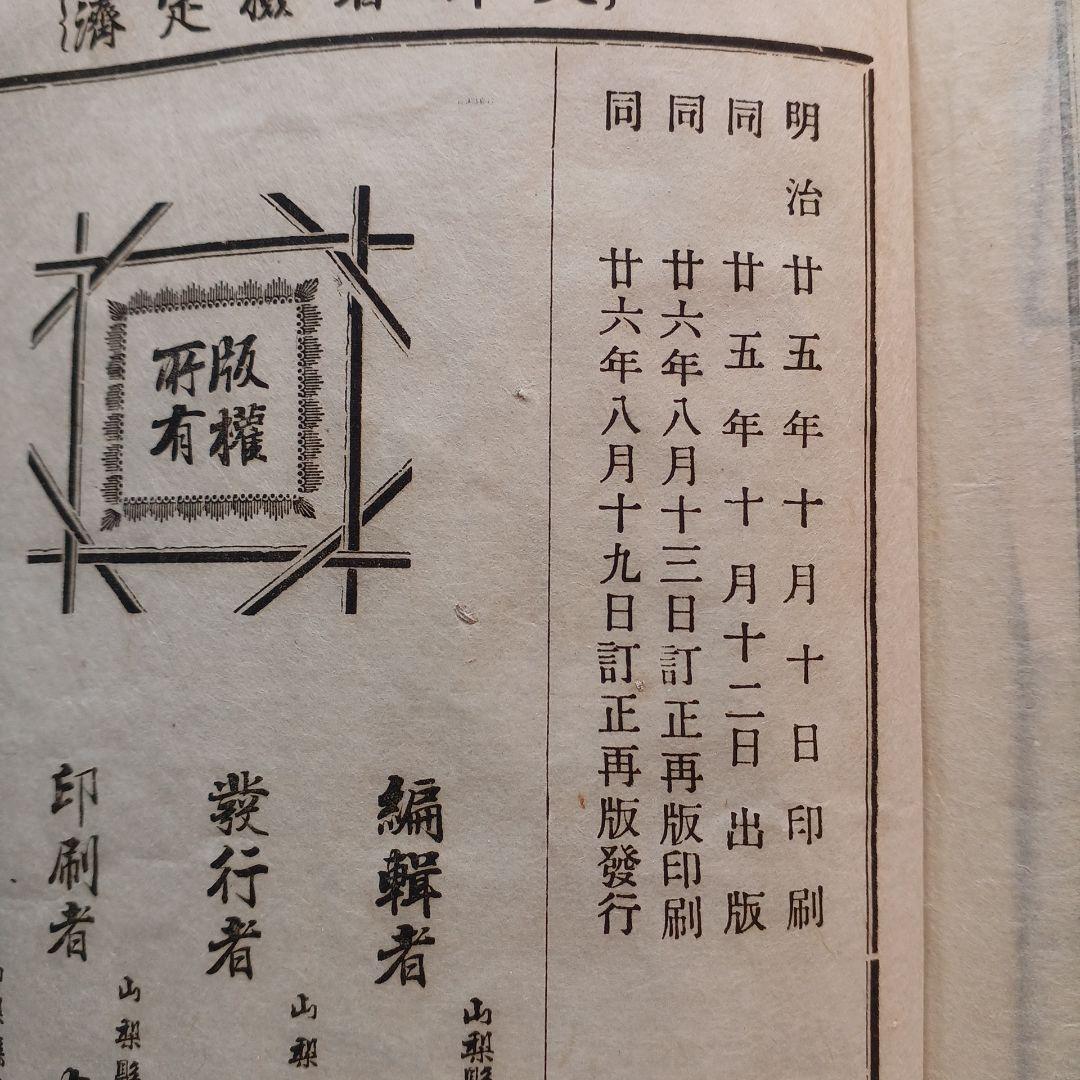 明治廿五年十月十日印刷
同廿五年十月十二日出版
同廿六年八月十三日訂正再版印刷
同廿六年八月十九日訂正再版發行
版權
所有
編輯者
山梨縣
發行者
山梨
山梨縣
印刷者
定
濟